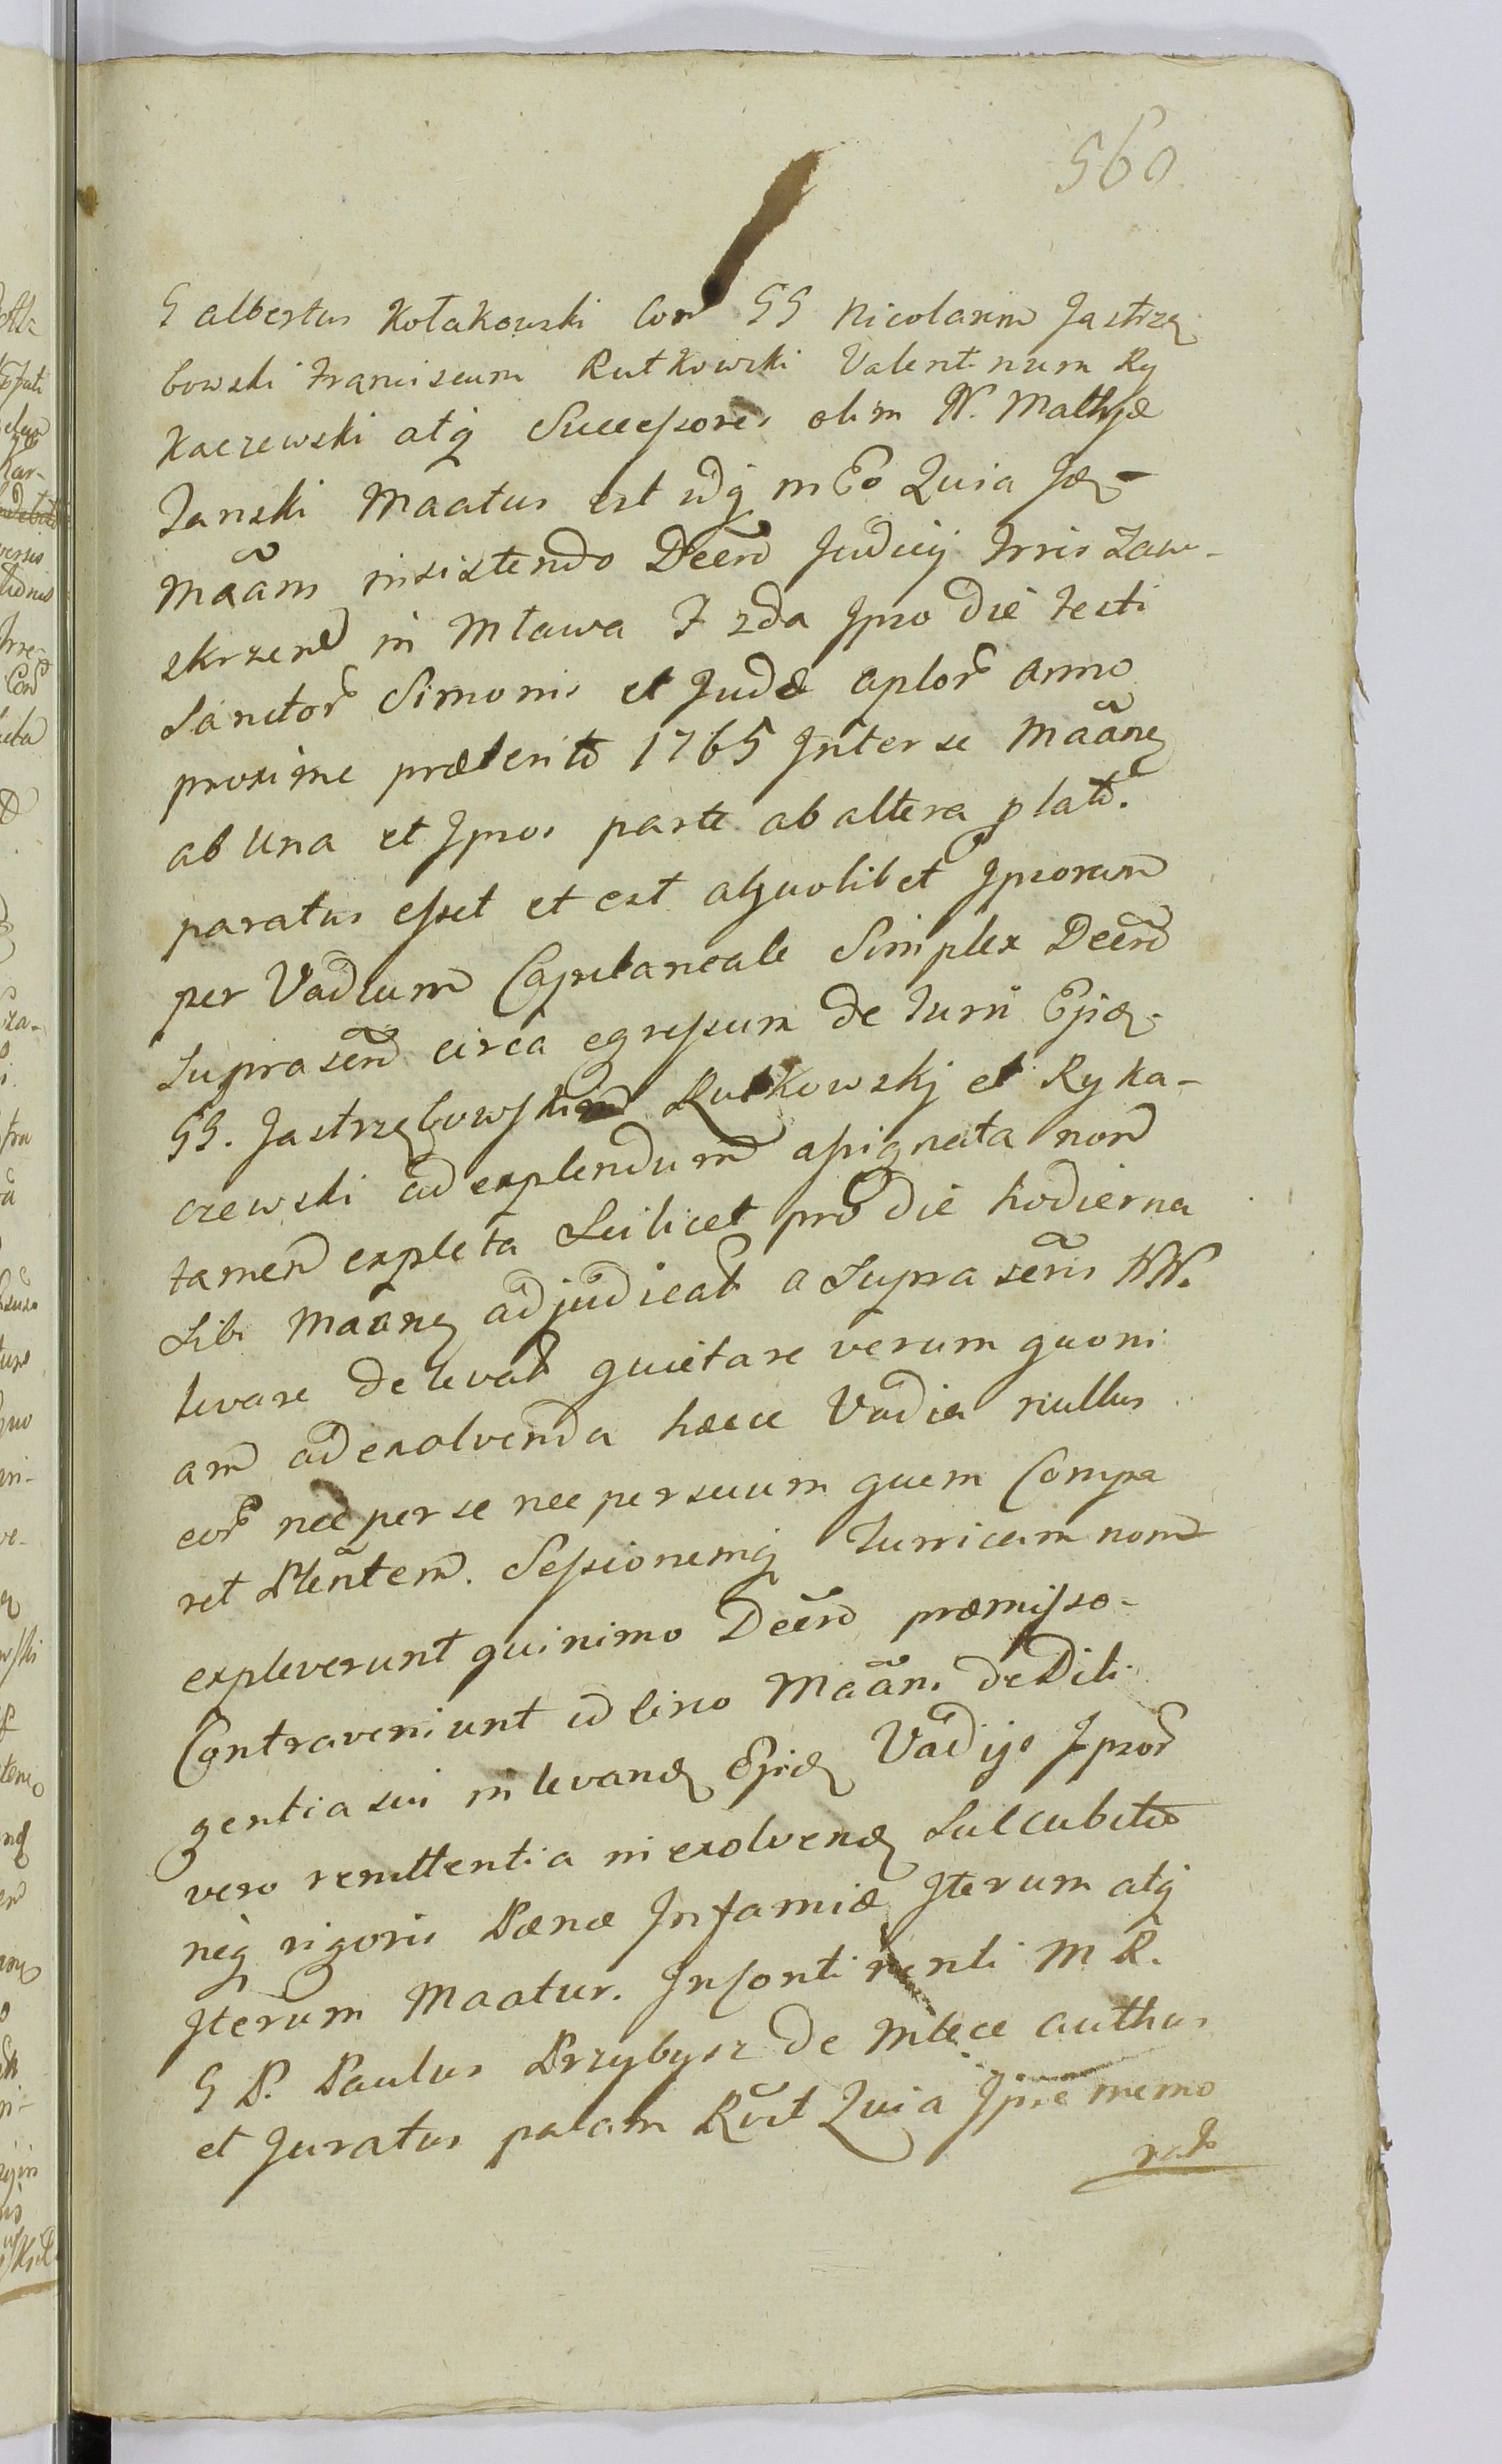 560
G albertus Kołakowski Con GG Nicolaum Jastrzę
bowski Franciscum Rutkowski Valentinum Ry
kaczewski atq Successores olim N. Mathiæ
Janski Maatus est idq in Eo Quia Jdē
mãans insistendo Decro Judicij Trris Zaw-
skrzene in Mława F 2da Ipso die festi
Sanctor Simonis et Judæ aplor anno
proxime præterito 1765 Inter se Mããne
ab una et Ipsos parte ab altera plato.
paratus esset et est a quolibet Ipsorum
per Vadium Capitaneale Simplex Decro
supra scrō circa egressum de Turri Epiæ
GG. Jastrzębowski Rutkowskj et Ryka-
czewski ad explendum assignata non
tamen expleta Scilicet pro die hodierna
Sibi Maane adjudicat a Supra scris NN.
levare de levat quietare verum quoni
am ad exolvenda hæcce Vadia nullus
eor nec per se nec per suum quem Compa
ret Plentem. Sessionemq Turricam non
expleverunt quinimo Decro præmisso-
Contraveniunt id circo Mããns de Dili
gentia sui in levande Epiæ Vadijs Ipsor
vero renittentia in exolvende Succubito
neq rigoris Pænæ Infamiæ Iterum atq
Iterum Maatur. Insontinenti M R.
G P. Paulus Przybysz de Mlece authus
et Juratus palam Rvit Quia Ipse memo
rato